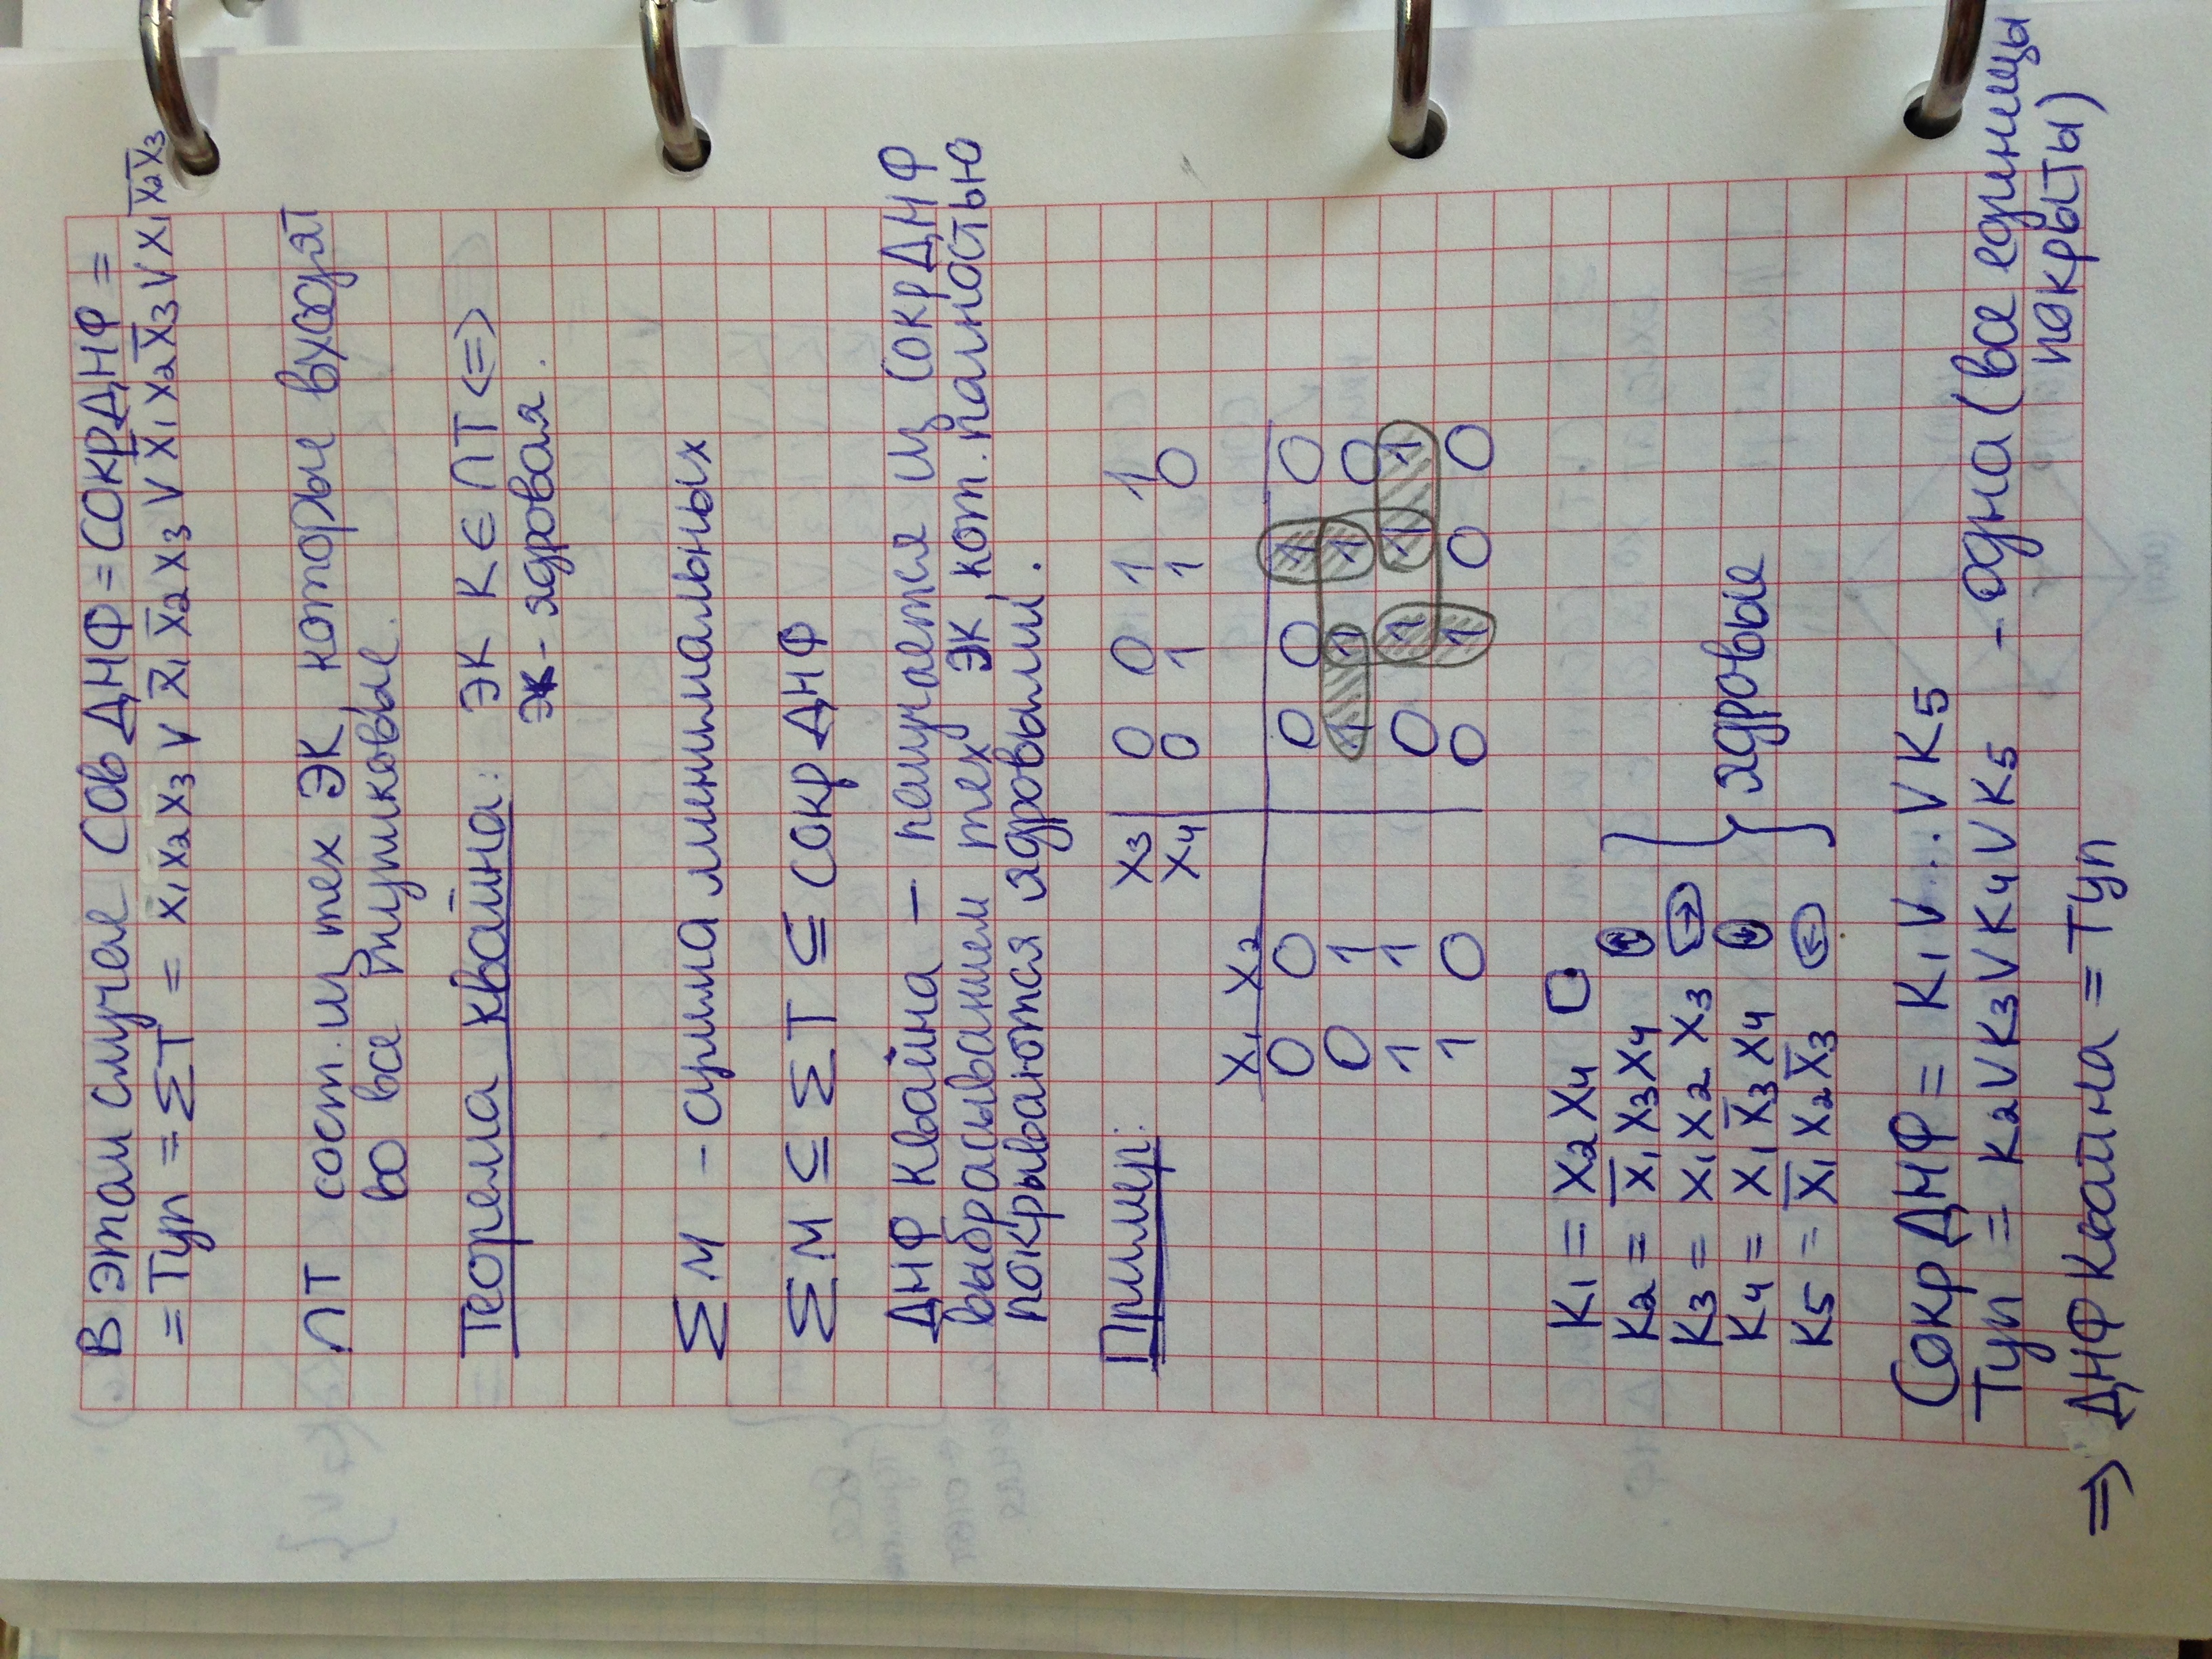 В этом случае СовДНФ = СОКРДНФ =
= Туп = ΣТ = x̅₁x₂x₃ ∨ x̅₁x̅₂x₃ ∨ x̅₁x₂x̅₃ ∨ x₁x̅₂x̅₃
ПТ сост. из тех ЭК, которые входят
во все тупиковые.
Теорема Квайна: ЭК K ∈ ПТ <=>
ЭК - ядровая.
ΣМ - сумма минимальных
ΣМ ⊆ ΣТ ⊆ СОКРДНФ
ДНФ Квайна - получается из СокрДНФ
выбрасыванием тех ЭК, кот. полностью
покрываются ядровыми.
Пример:
x₃ 0 0 1 1
x₄ 0 1 1 0
x₁ x₂
0 0 0 0 1 0
0 1 1 1 1 0
1 1 0 1 1 1
1 0 0 1 0 0
K₁ = x₂x₄
K₂ = x̅₁x₃x₄ ↑
K₃ = x₁x₂x₃ →
K₄ = x₁x̅₃x₄ ↓
K₅ = x̅₁x₂x̅₃ ←
} ядровые
СокрДНФ = K₁ ∨ ... ∨ K₅
Туп = K₂ ∨ K₃ ∨ K₄ ∨ K₅ - одна (все единицы
покрыты)
=> ДНФ Квайна = Туп